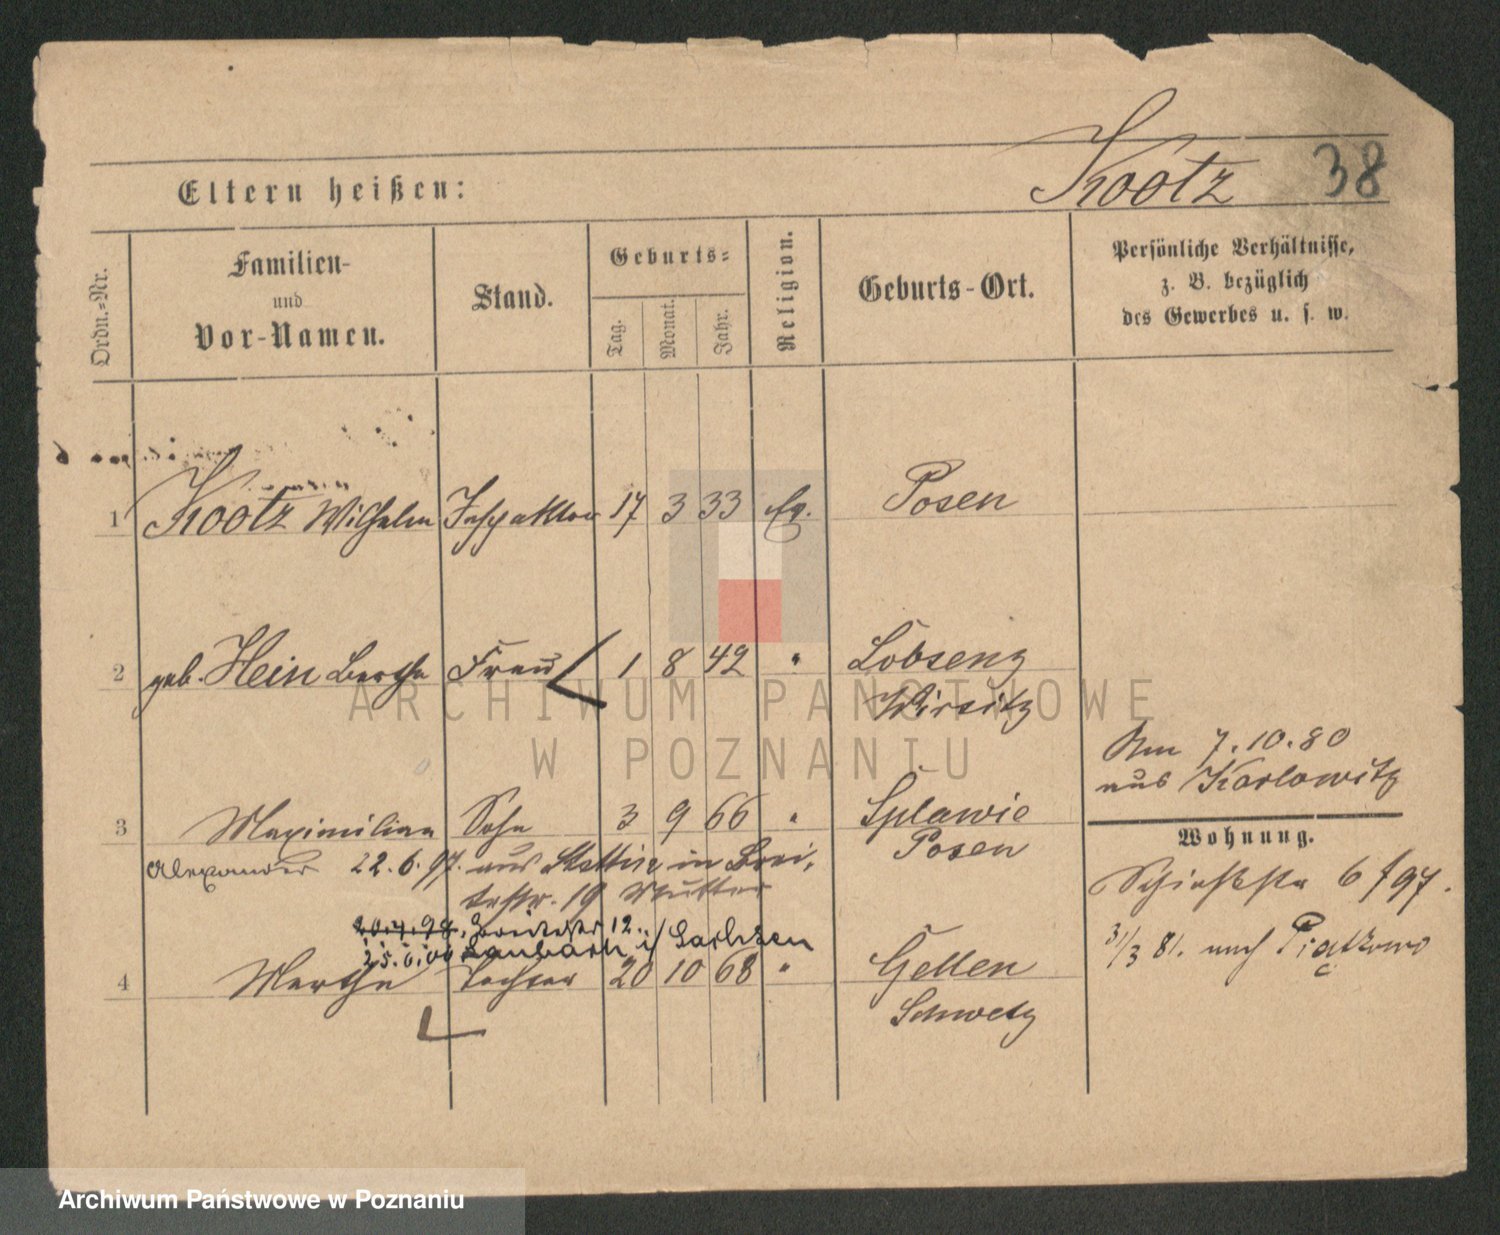 Kootz 38
Eltern heißen:
Ordn.-Nr.
Familien-
und
Vor-Namen.
Stand.
Geburts-
Tag.
Monat.
Jahr.
Religion.
Geburts-Ort.
Persönliche Verhältnisse,
z. B. bezüglich
des Gewerbes u. s. w.
1 Kootz Wilhelm Inspektor 17 3 33 Ev. Posen
2 geb. Hein Bertha Frau 1 8 42 " Lobsenz
Wirsitz
Am 7.10.80
aus Karlowitz
3 Maximilian Sohn 3 9 66 " Splawie
Posen
Alexander 22.6.97. aus Stettin in Brei-
testr. 19 Mutter
Wohnung.
Schießstr 6 /97.
20.4.98. Breitestr 12.
25.6.00 Laubach i/ Sachsen
4 Martha Tochter 20 10 68 " Gellen
Schwetz
31/3 81. nach Piątkowo
ARCHIWUM PAŃSTWOWE
W POZNANIU
Archiwum Państwowe w Poznaniu